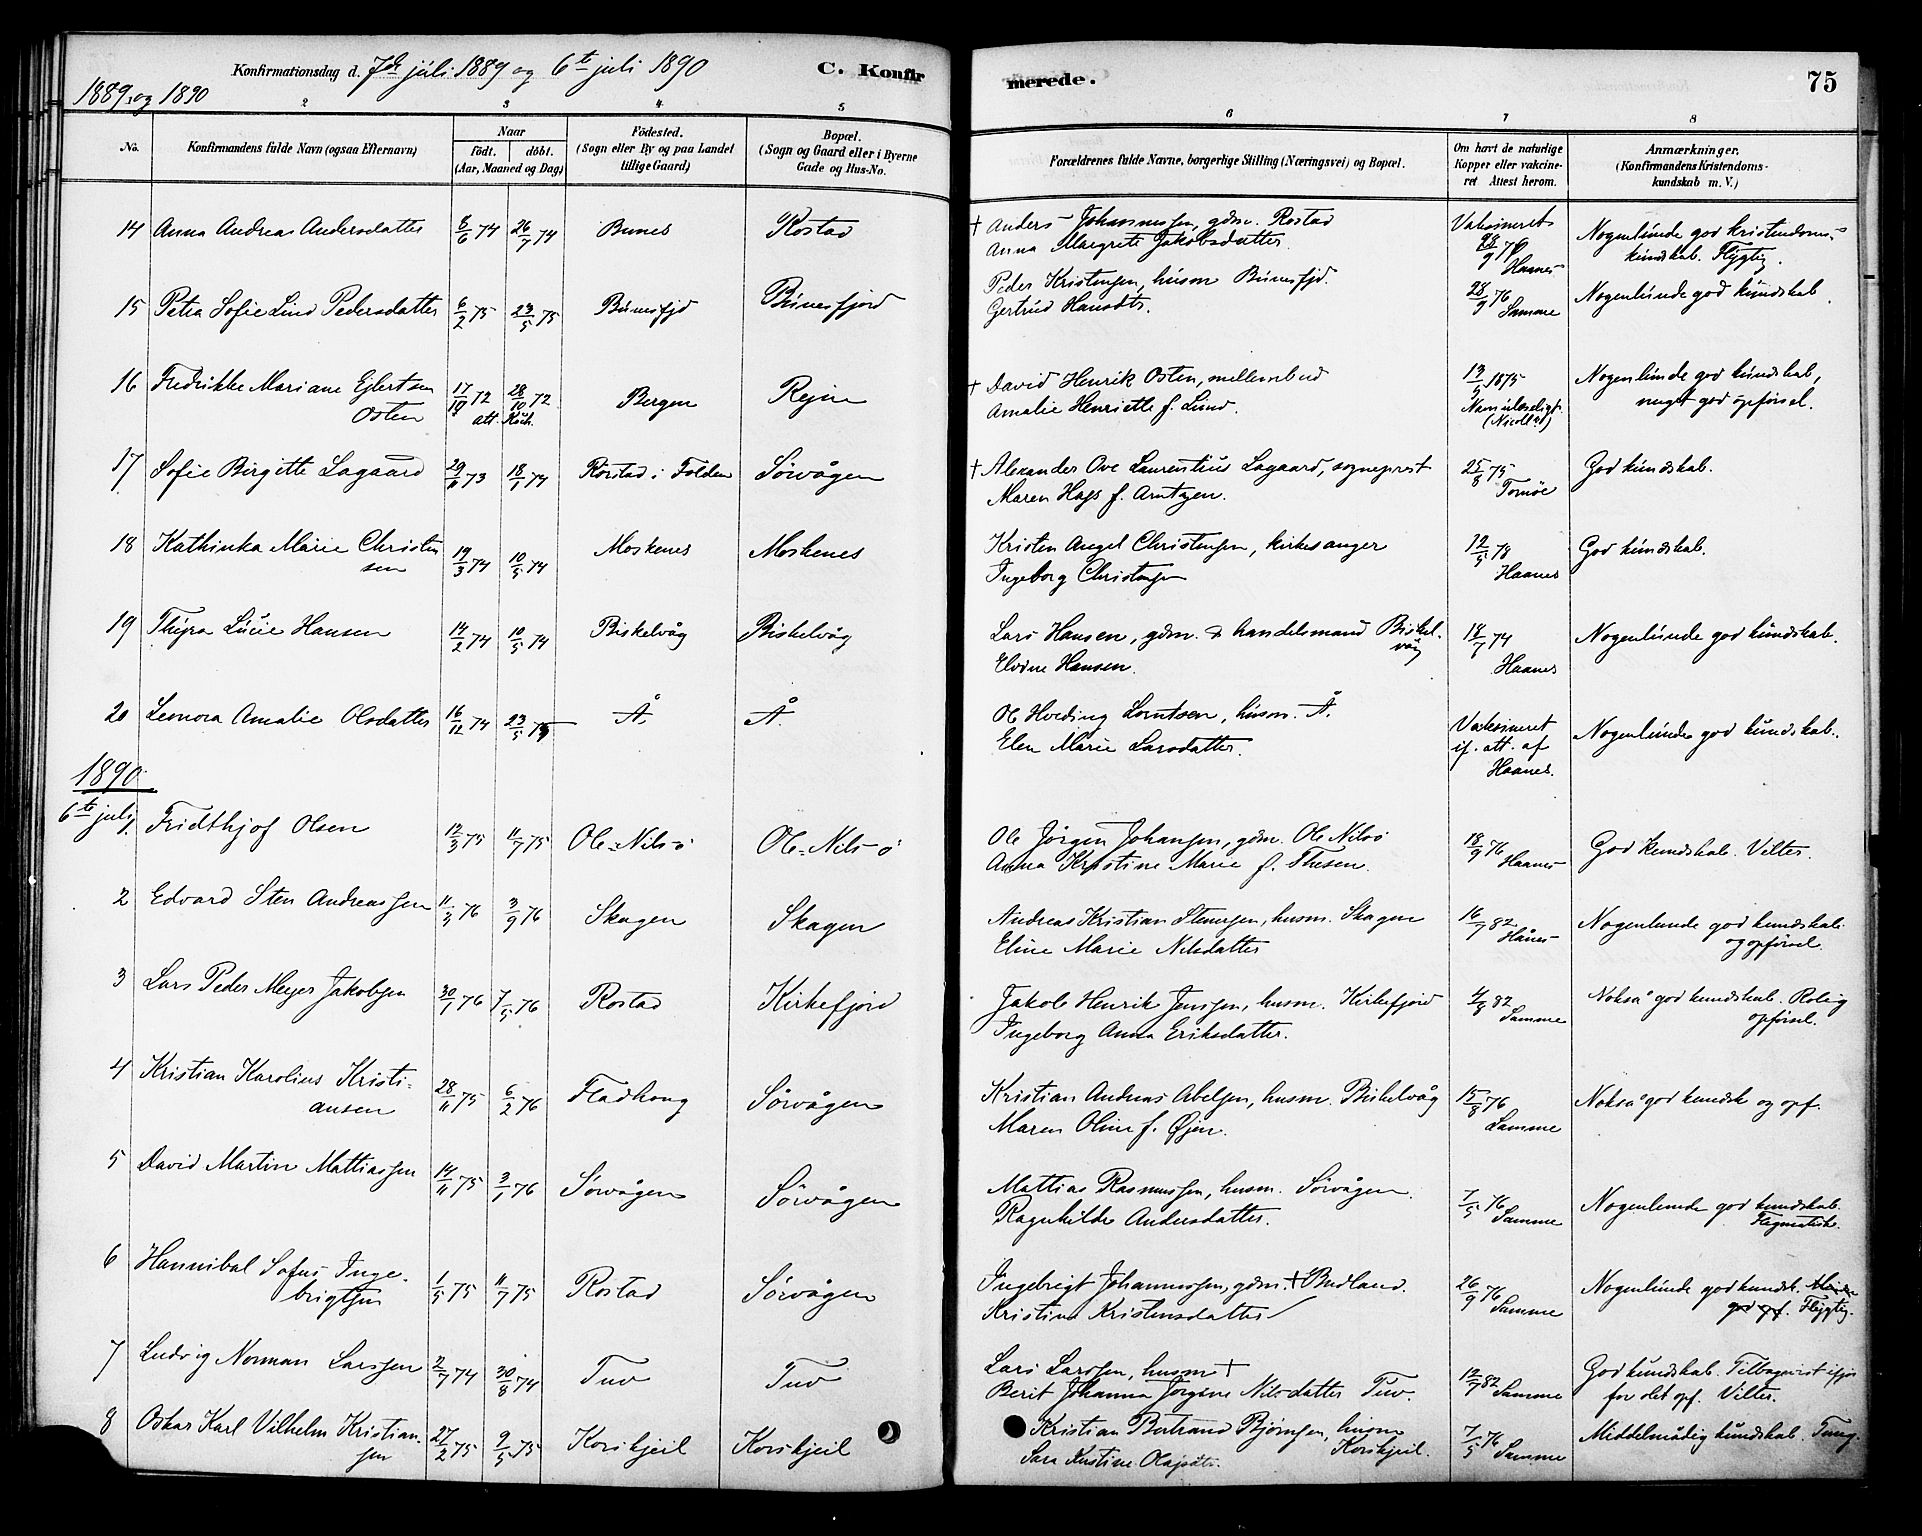 Konfirmationsdag d. 7de juli 1889 og 6te juli 1890
C. Konfir
merede.
75
1889 og 1890
2 3 4 5 6 7 8
No.
Konfirmandens fulde Navn (ogsaa Efternavn)
Naar
Födt. döbt.
(Aar, Maaned og Dag)
Födested.
(Sogn eller By og paa Landet
tillige Gaard)
Bopæl.
(Sogn og Gaard eller i Byerne
Gade og Hus-No.
Forældrenes fulde Navne, borgerlige Stilling (Næringsvei) og Bopæl.
Om havt de naturlige
Kopper eller vakcine-
ret Attest herom.
Anmærkninger.
(Konfirmandens Kristendoms-
kundskab m. V.)
14 Anna Andrea Andersdatter 8/6 74 26/7 74 Bunes Rostad † Anders Johannessen, gdm. Rostad Vaksineret
Anna Margrete Jakobsdatter. 28/9 76 Haanes
Nogenlunde god kristendoms-
kundskab. Flygtig.
15 Petra Sofie Lind Pedersdatter 6/2 75 23/5 75 Bunesfjd Bunesfjord Peder Kristensen, husm Bunesfjd. 28/9 76 Samme Nogenlunde god kundskab.
Gertrud Hansdtr.
16 Fredrikke Mariane Ejlertsen 17/10 72 28/10 72 Bergen Rejne † David Henrik Osten, mellembud 13/5 1875 Nogenlunde god kundskab,
Osten att. Amalie Henriette f. Lund. Navn ulæseligt meget god opførsel.
17 Sofie Birgitte Lagaard 29/11 73 18/1 74 Rørstad i Folden Sörvågen † Alexander Ove Laurentius Lagaard, sogneprest 25/8 75 God kundskab.
Maren Hays f. Arntzen. Tomöe
18 Kathinka Marie Christen 19/3 74 10/5 74 Moskenes Moskenes Kristen Angel Christensen, kirkesanger 12/5 78 God kundskab.
sen Ingeborg Christensen Haanes
19 Thyra Lucie Hansen 14/2 74 10/5 74 Biskelvåg Biskelvåg Lars Hansen, gdm. & handelsmand Biskel- 18/7 74 Nogenlunde god kundskab.
våg
Elvine Hansen. Haanes
20 Leonora Amalie Olsdatter 16/12 74 23/5 75 Å Å. Ol Hveding Lorntsen, husm. Å. Vaksineret Nogenlunde god kundskab.
Elen Marie Larsdatter. if. att. af
Haanes.
1890.
6te juli
1 Fridthjof Olsen 12/3 75 11/7 75 Ole-Nils-ö Ole-Nils-ö Ole Jörgen Johansen, gdm. Ole Nilsö 18/9 76 Haanes God kundskab. Vilter.
Anna Kristine Marie f. Thesen.
2 Edvard Sten Andreassen 11/3 76 3/9 76 Skagen Skagen Andreas Kristian Stenersen, husm. Skagen 16/7 82 Hånes Nogenlunde god kundskab
Eline Marie Nilsdatter og opførsel.
3 Lars Peder Meyer Jakobsen 30/1 76 7/5 76 Rostad Kirkefjord Jakob Henrik Jenssen, husm. Kirkefjord 4/8 82 Samme Nokså god kundskab. Rolig
Ingeborg Anna Eriksdatter. opførsel.
4 Kristian Karolius Kristi- 28/11 75 6/2 76 Fladhaug Sörvågen Kristian Andreas Abelsen, husm. Biskelvåg 15/8 76 Samme Nokså god kundsk og opf.
ansen Maren Oline f. Øjen.
5 David Martin Mattiassen 14/11 75 3/1 76 Sörvågen Sörvågen Mattias Rasmussen, husm. Sörvågen. 7/5 76 Samme Nogenlunde god kundskab.
Ragnhilde Andersdatter. Flegmatisk.
6 Hannibal Sofus Inge- 1/5 75 11/7 75 Rostad Sörvågen Ingebrigt Johannessen, gdm. † Budland. 26/9 76 Samme Nogenlunde god kundsk.
brigtsen Kristine Kristensdatter god opf. Flygtig.
7 Ludvig Norman Larssen 2/7 74 30/8 74 Tuv Tuv Lars Larssen, husm † 12/7 82 Samme God kundskab. Tilbagevist ifjor
Berit Johanna Jörgine Nilsdatter Tuv. for slet opf. Vilter.
8 Oskar Karl Vilhelm Kristian- 27/2 75 9/5 75 Korshjeil Korshjeil Kristian Bertrand Björnsen, husm 7/5 76 Samme Middelmådig kundskab. Tung.
sen Sara Kristine Olajsdtr. Korshjeil.